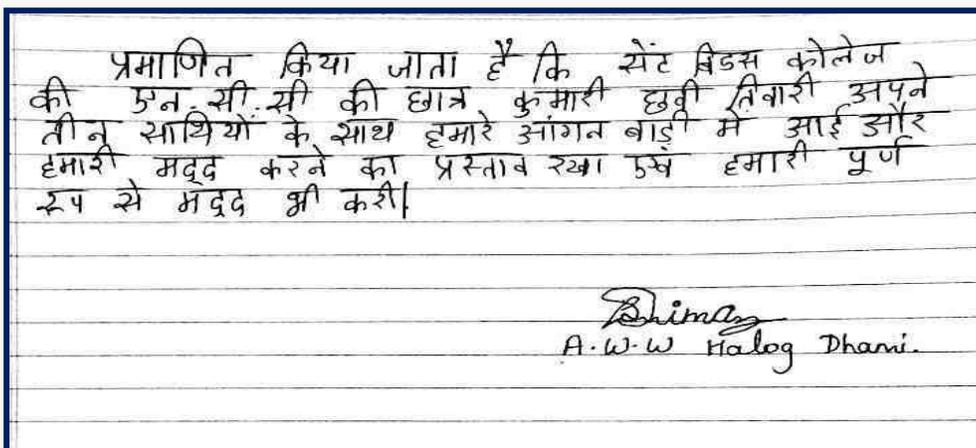 प्रमाणित किया जाता है कि सेंट बिडस कोलेज
की एन.सी.सी की छात्र कुमारी छवी तिवारी अपने
तीन साथियों के साथ हमारे आंगन बाड़ी में आई और
हमारी मद्द करने का प्रस्ताव रखा एवं हमारी पूर्ण
रुप से मद्द भी करी।
A.W.W Halog Dhami.